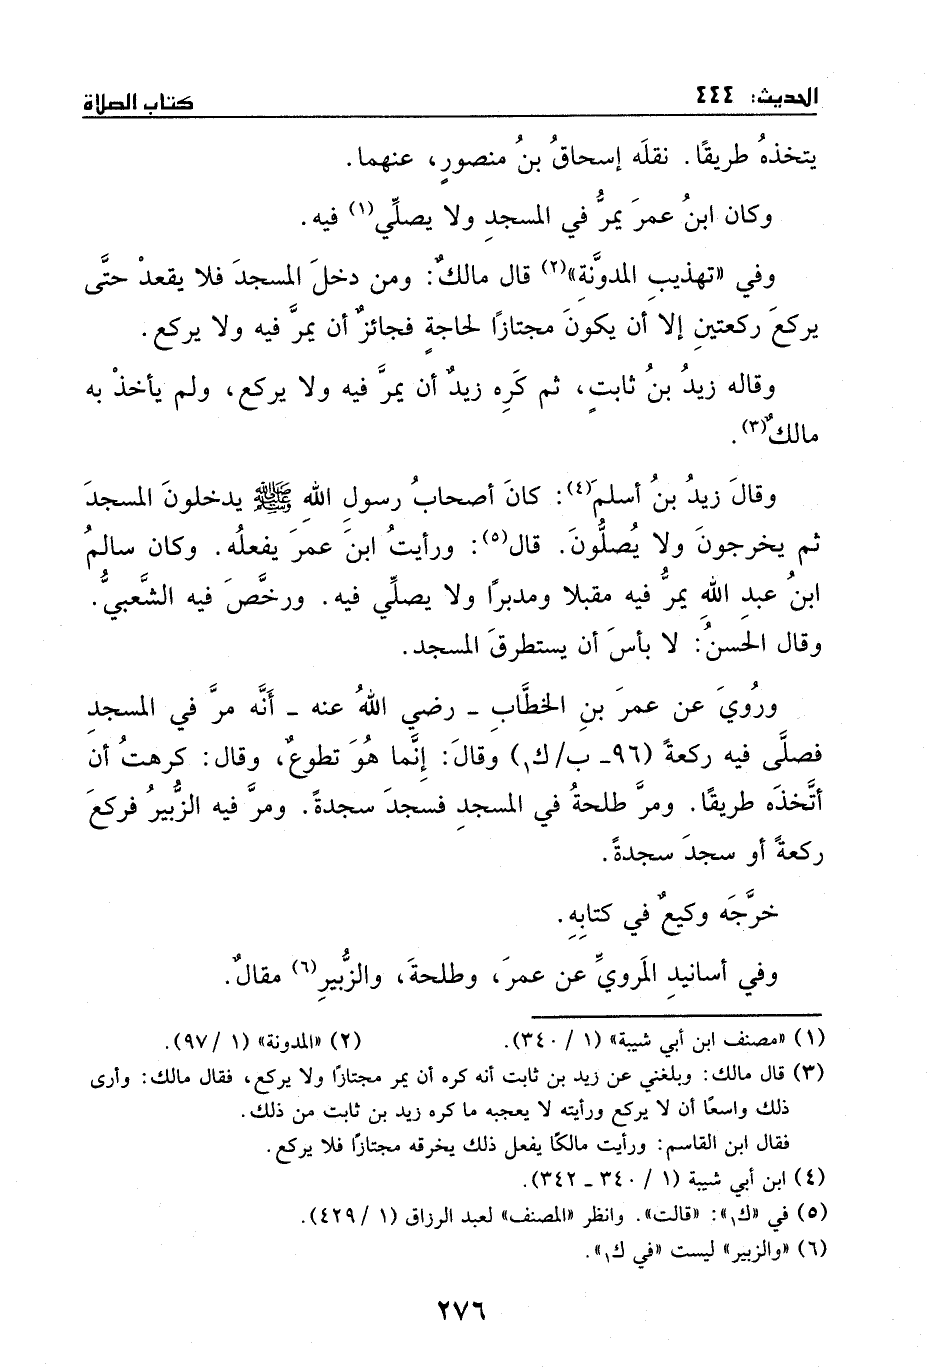 الحديث: ٤٤٤
كتاب الصلاة
يتخذهُ طريقًا. نقلَه إسحاقُ بنُ منصورٍ، عنهما.
وكان ابنُ عمرَ يمرُّ في المسجدِ ولا يصلِّي(١) فيه.
وفي «تهذيبِ المدوَّنة»(٢) قال مالكٌ: ومن دخلَ المسجدَ فلا يقعدْ حتَّى
يركعَ ركعتينِ إلا أن يكونَ مجتازًا لحاجةٍ فجائزٌ أن يمرَّ فيه ولا يركع.
وقاله زيدُ بنُ ثابتٍ، ثم كَرِه زيدٌ أن يمرَّ فيه ولا يركع، ولم يأخذْ به
مالكٌ(٣).
وقالَ زيدُ بنُ أسلمَ(٤): كانَ أصحابُ رسولِ اللهِ ﷺ يدخلونَ المسجدَ
ثم يخرجونَ ولا يُصلُّونَ. قال(٥): ورأيتُ ابنَ عمرَ يفعلُه. وكان سالمُ
ابنُ عبدِ اللهِ يمرُّ فيه مقبلا ومدبرًا ولا يصلِّي فيه. ورخَّصَ فيه الشَّعبيُّ.
وقال الحسنُ: لا بأسَ أن يستطرقَ المسجد.
ورُويَ عن عمرَ بنِ الخطَّابِ ـ رضي اللهُ عنه ـ أنَّه مرَّ في المسجدِ
فصلَّى فيه ركعةً (٩٦ـ ب/ك١) وقالَ: إنَّما هوَ تطوعٌ، وقال: كرهتُ أن
أتَّخذَه طريقًا. ومرَّ طلحةُ في المسجدِ فسجدَ سجدةً. ومرَّ فيه الزُّبيرُ فركعَ
ركعةً أو سجدَ سجدةً.
خرَّجَه وكيعٌ في كتابِهِ.
وفي أسانيدِ المَرويِّ عن عمرَ، وطلحةَ، والزُّبيرِ(٦) مقالٌ.
(١) «مصنف ابن أبي شيبة» (١ / ٣٤٠).
(٢) «المدونة» (١ /٩٧).
(٣) قال مالك: وبلغني عن زيد بن ثابت أنه كره أن يمر مجتازًا ولا يركع، فقال مالك: وأرى
ذلك واسعًا أن لا يركع ورأيته لا يعجبه ما كره زيد بن ثابت من ذلك.
فقال ابن القاسم: ورأيت مالكًا يفعل ذلك يخرقه مجتازًا فلا يركع.
(٤) ابن أبي شيبة (١ / ٣٤٠ ـ ٣٤٢).
(٥) في «ك١»: «قالت». وانظر «المصنف» لعبد الرزاق (١ /٤٢٩).
(٦) «والزبير» ليست «في ك١».
٢٧٦